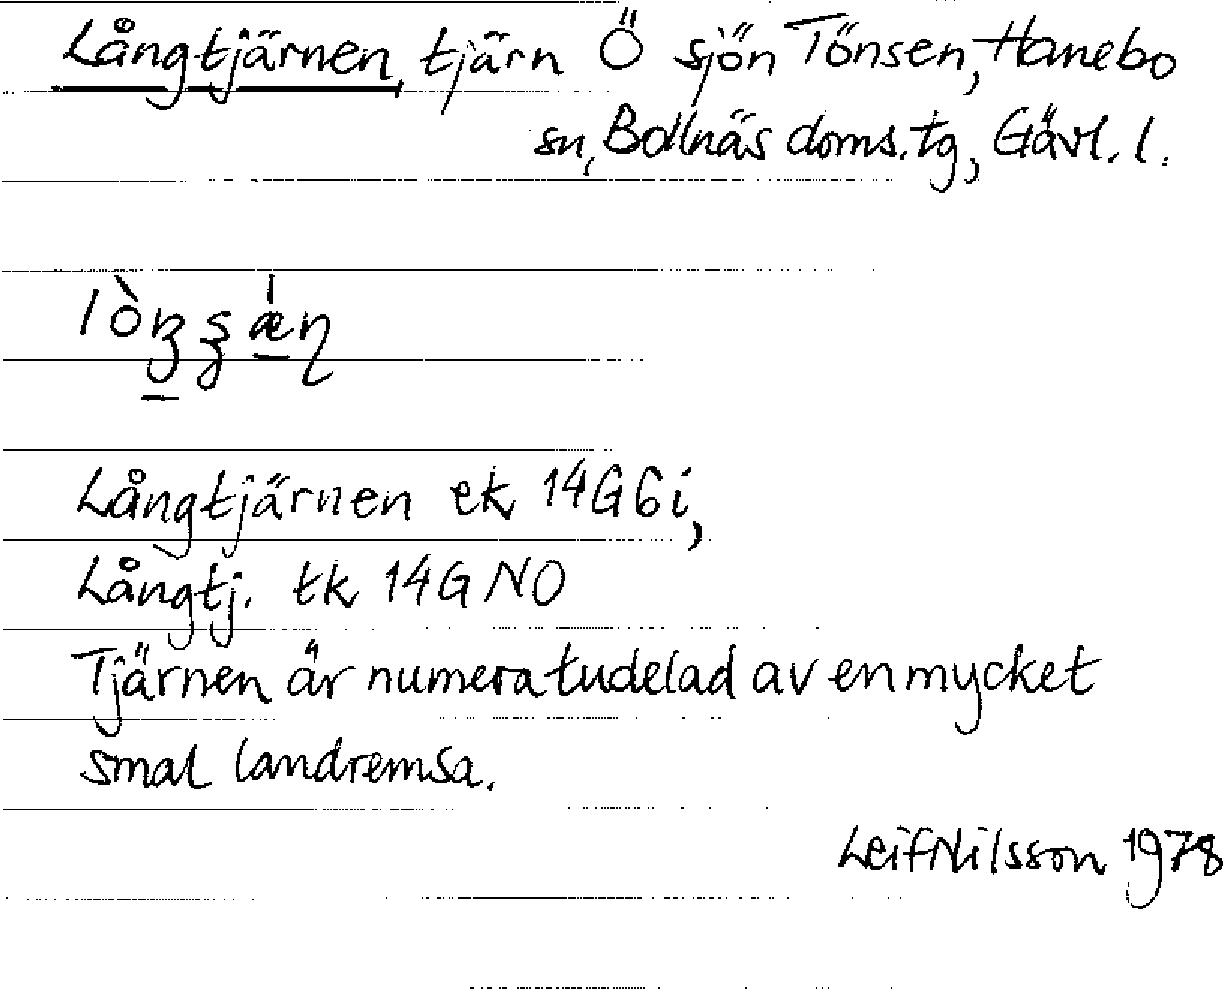 Långtjärnen, tjärn Ö sjön Tönsen, Hanebo
sn, Bollnäs doms. tg, Gävl. l.
Långtjärnen ek 14G6i,
Långtj. tk 14G NO
Tjärnen är numera tudelad av en mycket
smal landremsa.
Leif Nilsson 1978